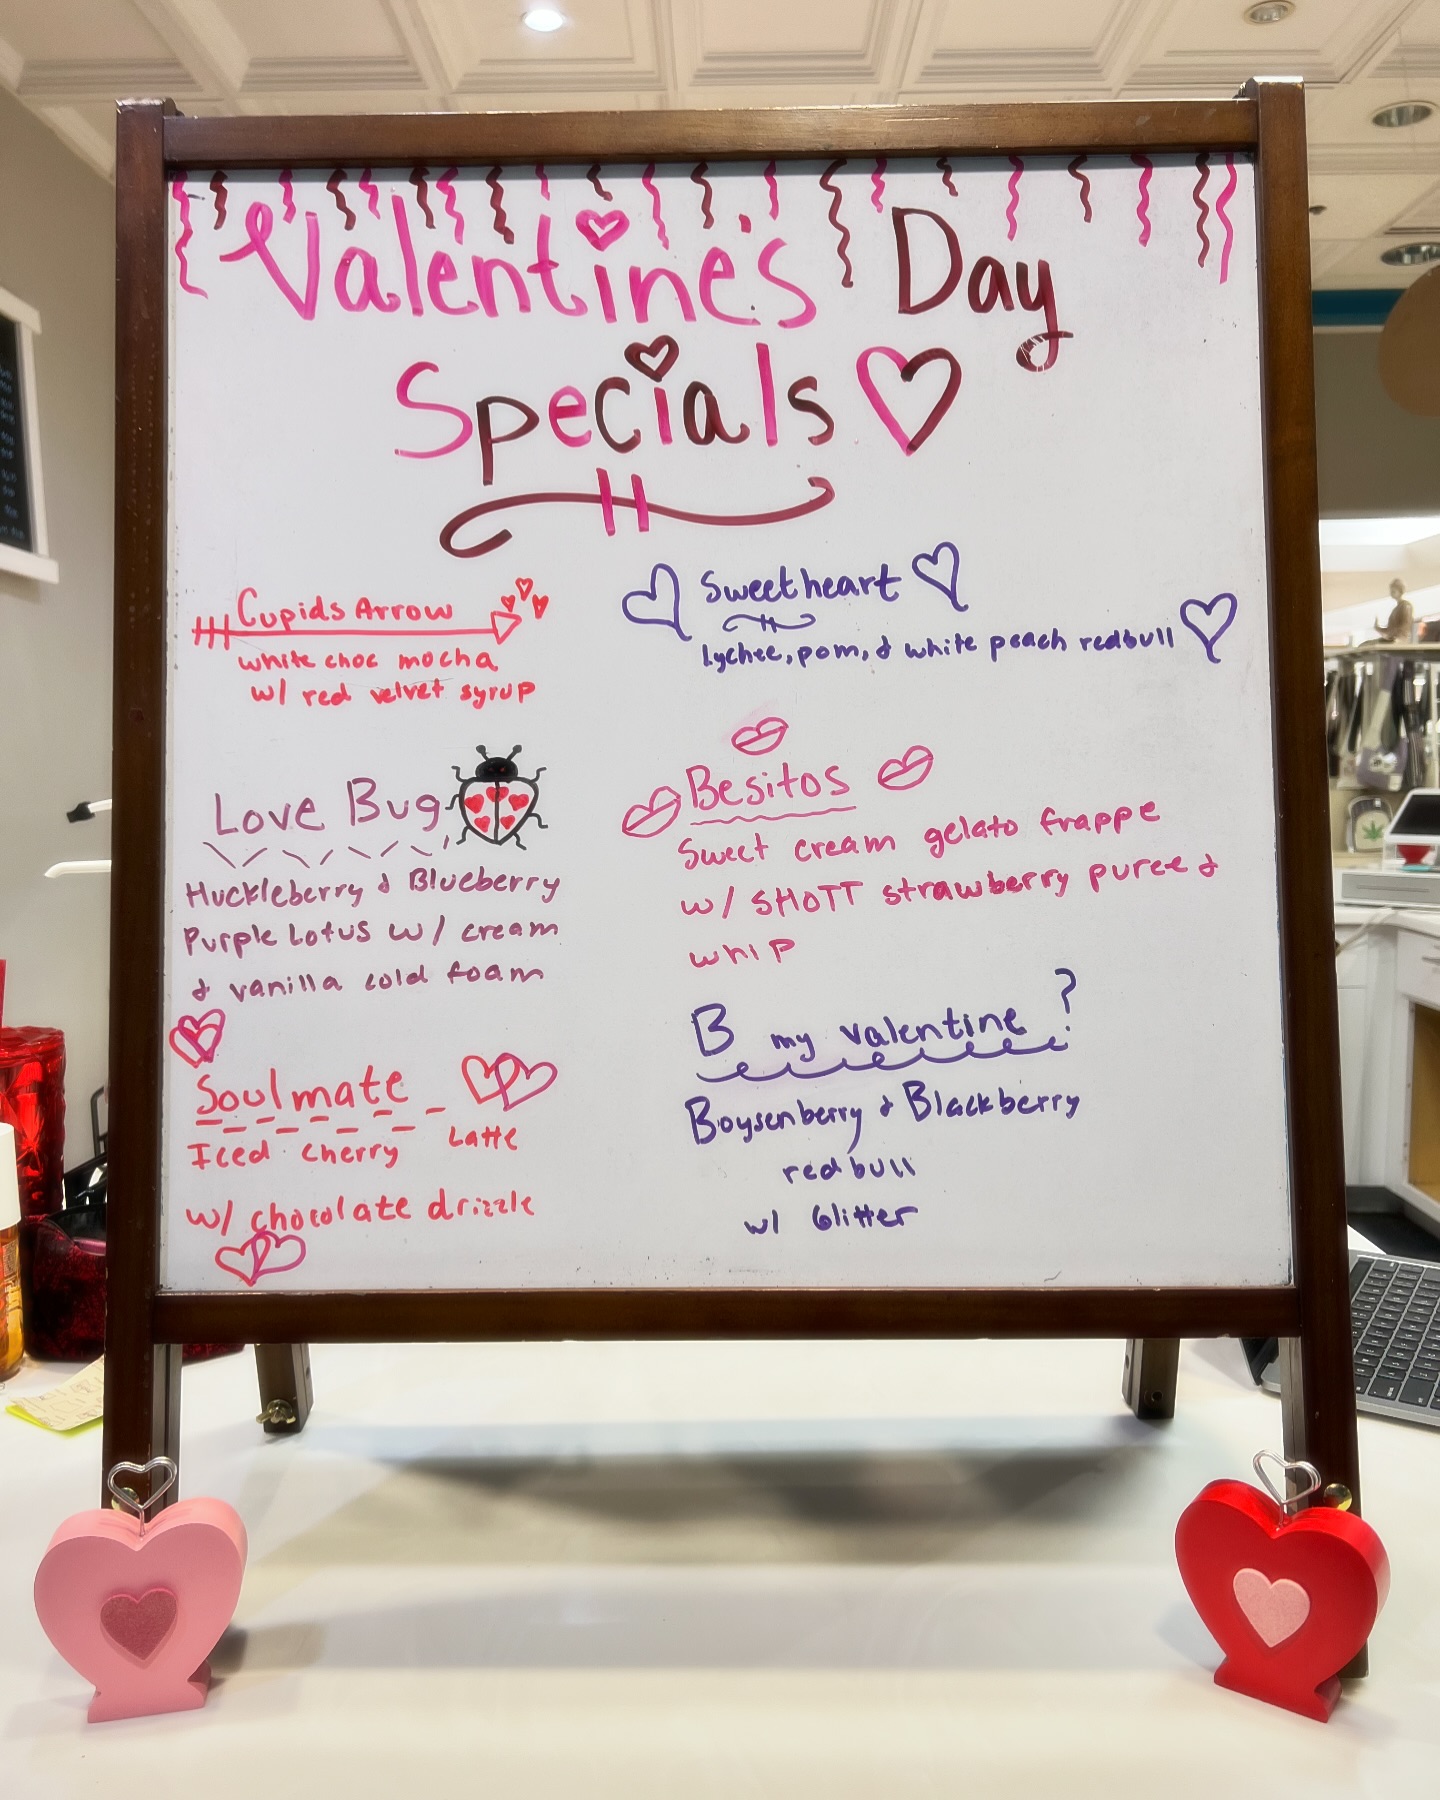 Valentine's Day
Specials
Cupids Arrow
white choc mocha
w/ red velvet syrup
Love Bug
Huckleberry & Blueberry
Purple Lotus w/ cream
& vanilla cold foam
Soulmate
Iced cherry Latte
w/ chocolate drizzle
Sweetheart
lychee, pom, & white peach redbull
Besitos
Sweet cream gelato frappe
w/ SHOTT strawberry puree &
whip
B my valentine?
Boysenberry & Blackberry
redbull
w/ Glitter